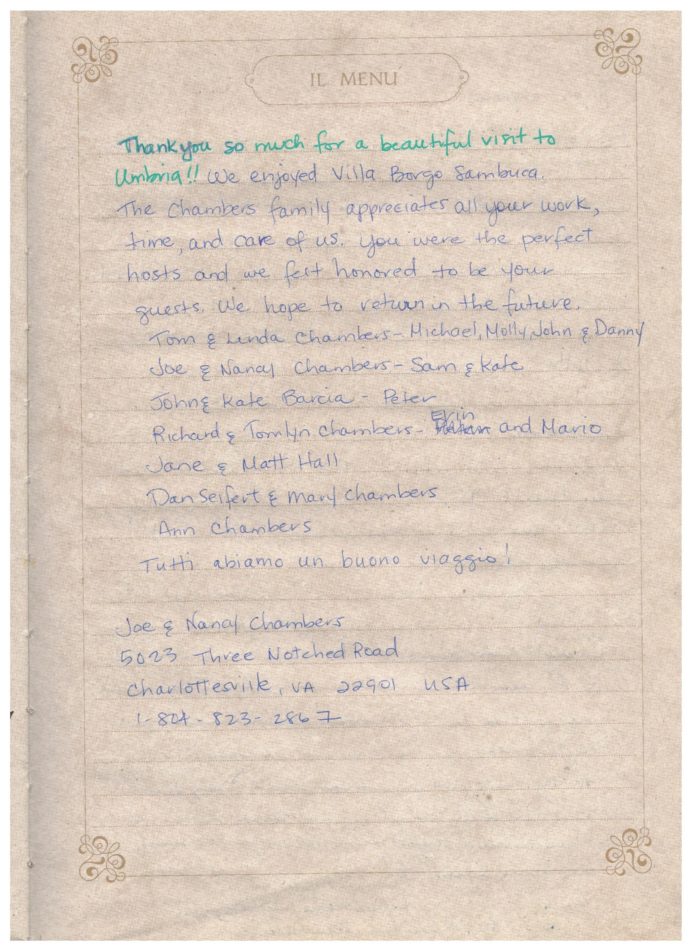 IL MENÚ
Thank you so much for a beautiful visit to
Umbria!! We enjoyed Villa Borgo Sambuca.
The Chambers family appreciates all your work,
time, and care of us. You were the perfect
hosts and we felt honored to be your
guests. We hope to return in the future.
Tom & Linda Chambers - Michael, Molly, John & Danny
Joe & Nancy Chambers - Sam & Kate
John & Kate Barcia - Peter
Richard & Tomlyn Chambers - Erin and Mario
Jane & Matt Hall
Dan Seifert & Mary Chambers
Ann Chambers
Tutti abiamo un buono viaggio!
Joe & Nancy Chambers
5023 Three Notched Road
Charlottesville, VA 22901 USA
1-804-823-2867